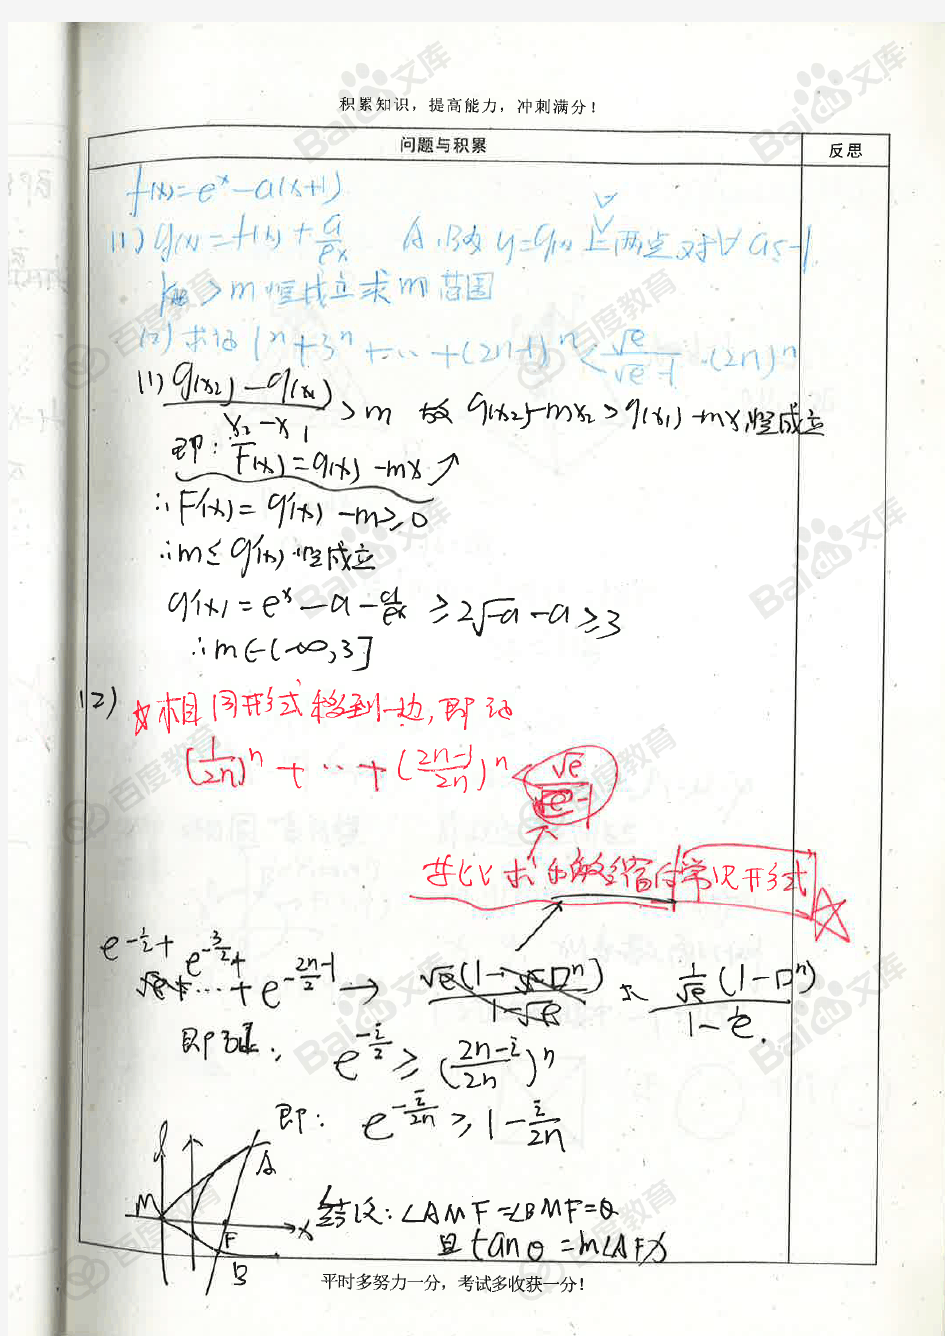 积累知识，提高能力，冲刺满分！
问题与积累
反思
f(x)=e^x-a(x+1)
(1) g(x)=f(x)+a/e^x A、B为y=g(x)上两点对∀a≤-1
k_AB>m恒成立求m范围
(2) 求证1^n+3^n+…+(2n-1)^n<√e/(√e-1)·(2n)^n
(1) (g(x2)-g(x1))/(x2-x1)>m 故 g(x2)-mx2>g(x1)-mx1恒成立
即：F(x)=g(x)-mx↗
∴F'(x)=g'(x)-m≥0
∴m≤g'(x)恒成立
g'(x)=e^x-a-a/e^x≥2√-a-a≥3
∴m∈(-∞,3]
(2) ☆相同形式移到一边，即证
(1/2n)^n+…+((2n-1)/2n)^n<√e/(√e-1)
等比求和放缩 常见形式
e^(-1/2)+e^(-3/2)+…+e^(-(2n-1)/2)→ (1/√e(1-□^n))/(1-1/e).
即证：e^(-i/2)≥((2n-i)/2n)^n
即：e^(-i/2n)≥1-i/2n
M A F B x
结论：∠AMF=∠BMF=θ
且tanθ=
平时多努力一分，考试多收获一分！
Baidu文库
百度教育